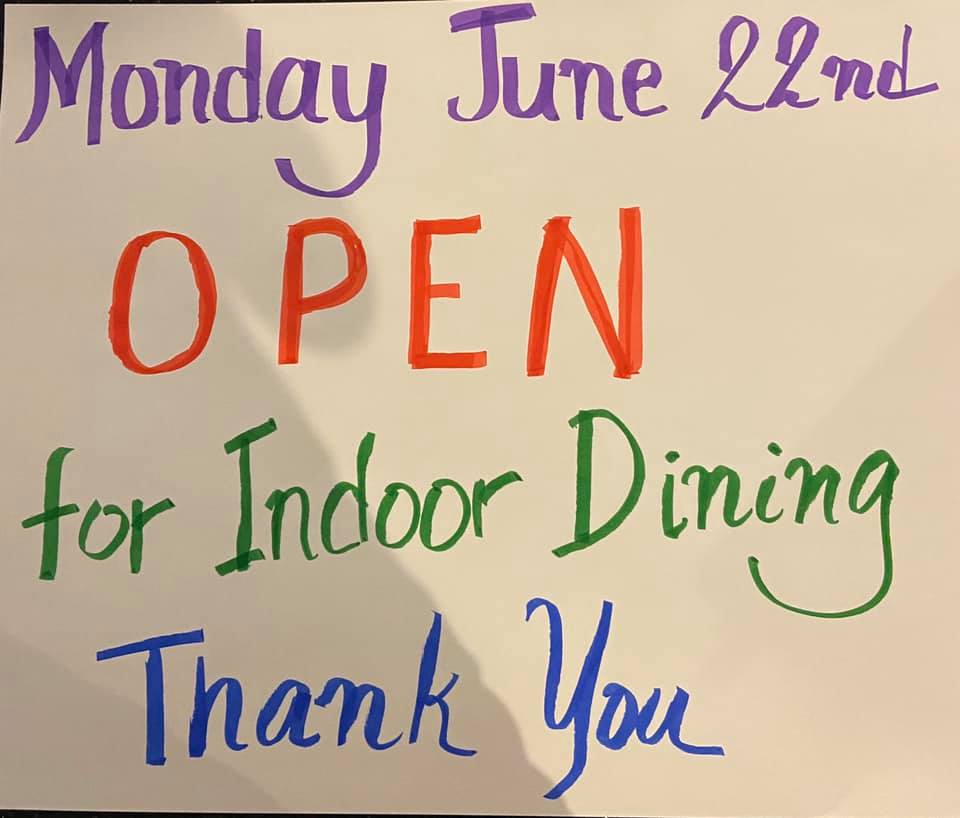 Monday June 22nd
OPEN
for Indoor Dining
Thank You